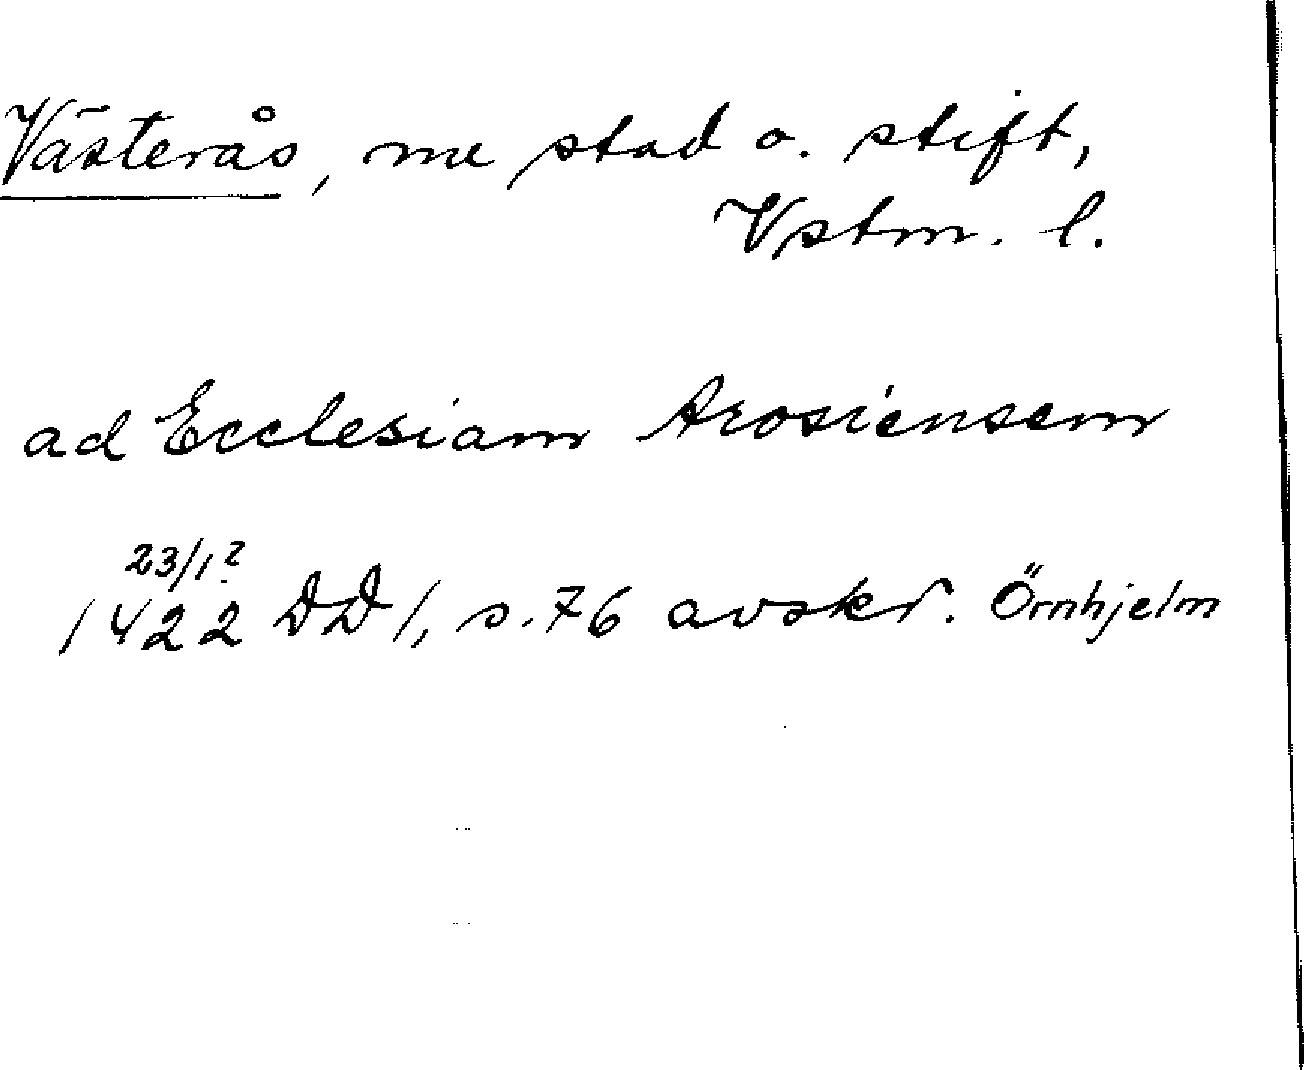 Västerås, nu stad o. stift,
Vstm. l.
ad Ecclesiam Arosiensem
23/1?
1422 DD 1, s. 76 avskr. Örnhjelm